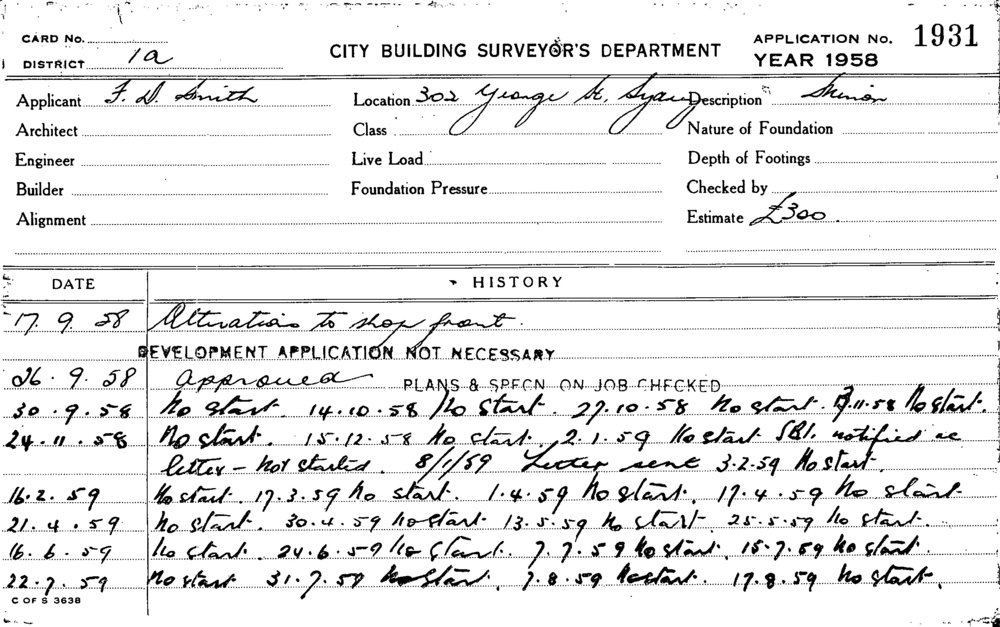 CARD No.
DISTRICT 1a
CITY BUILDING SURVEYOR'S DEPARTMENT
APPLICATION No. 1931
YEAR 1958
Applicant F. D. Smith Location 302 George St. Sydney Description
Architect Class Nature of Foundation
Engineer Live Load Depth of Footings
Builder Foundation Pressure Checked by
Alignment Estimate £300.
DATE HISTORY
17. 9. 58 Alterations to shop front.
DEVELOPMENT APPLICATION NOT NECESSARY
26. 9. 58 Approved PLANS & SPECN ON JOB CHECKED
30. 9. 58 No start. 14.10.58 No start. 27.10.58 No start. 11.58 No start.
24. 11. 58 No start. 15.12.58 No start. 2.1.59 No start SBI. notified re
letter - not started. 8/1/59 Letter sent 3.2.59 No start.
16. 2. 59 No start. 17.3.59 No start. 1.4.59 No start. 17.4.59 No start
21. 4. 59 No start. 30.4.59 No start 13.5.59 No start 25.5.59 No start.
16. 6. 59 No start. 24.6.59 No start. 7.7.59 No start. 15.7.59 No start.
22. 7. 59 No start 31.7.59 No start. 7.8.59 No start. 17.8.59 No start.
C OF S 3638